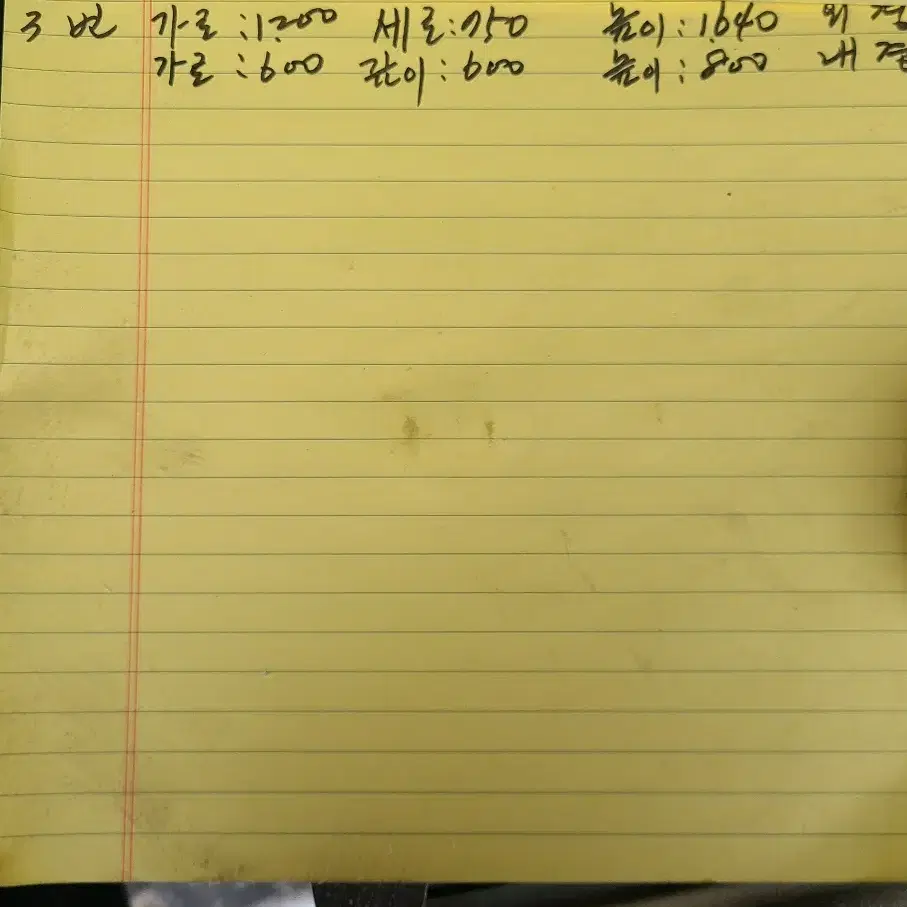 3 번 가로 : 1200 세로 : 750 높이 : 1640 외경
가로 : 600 깊이 : 600 높이 : 800 내경